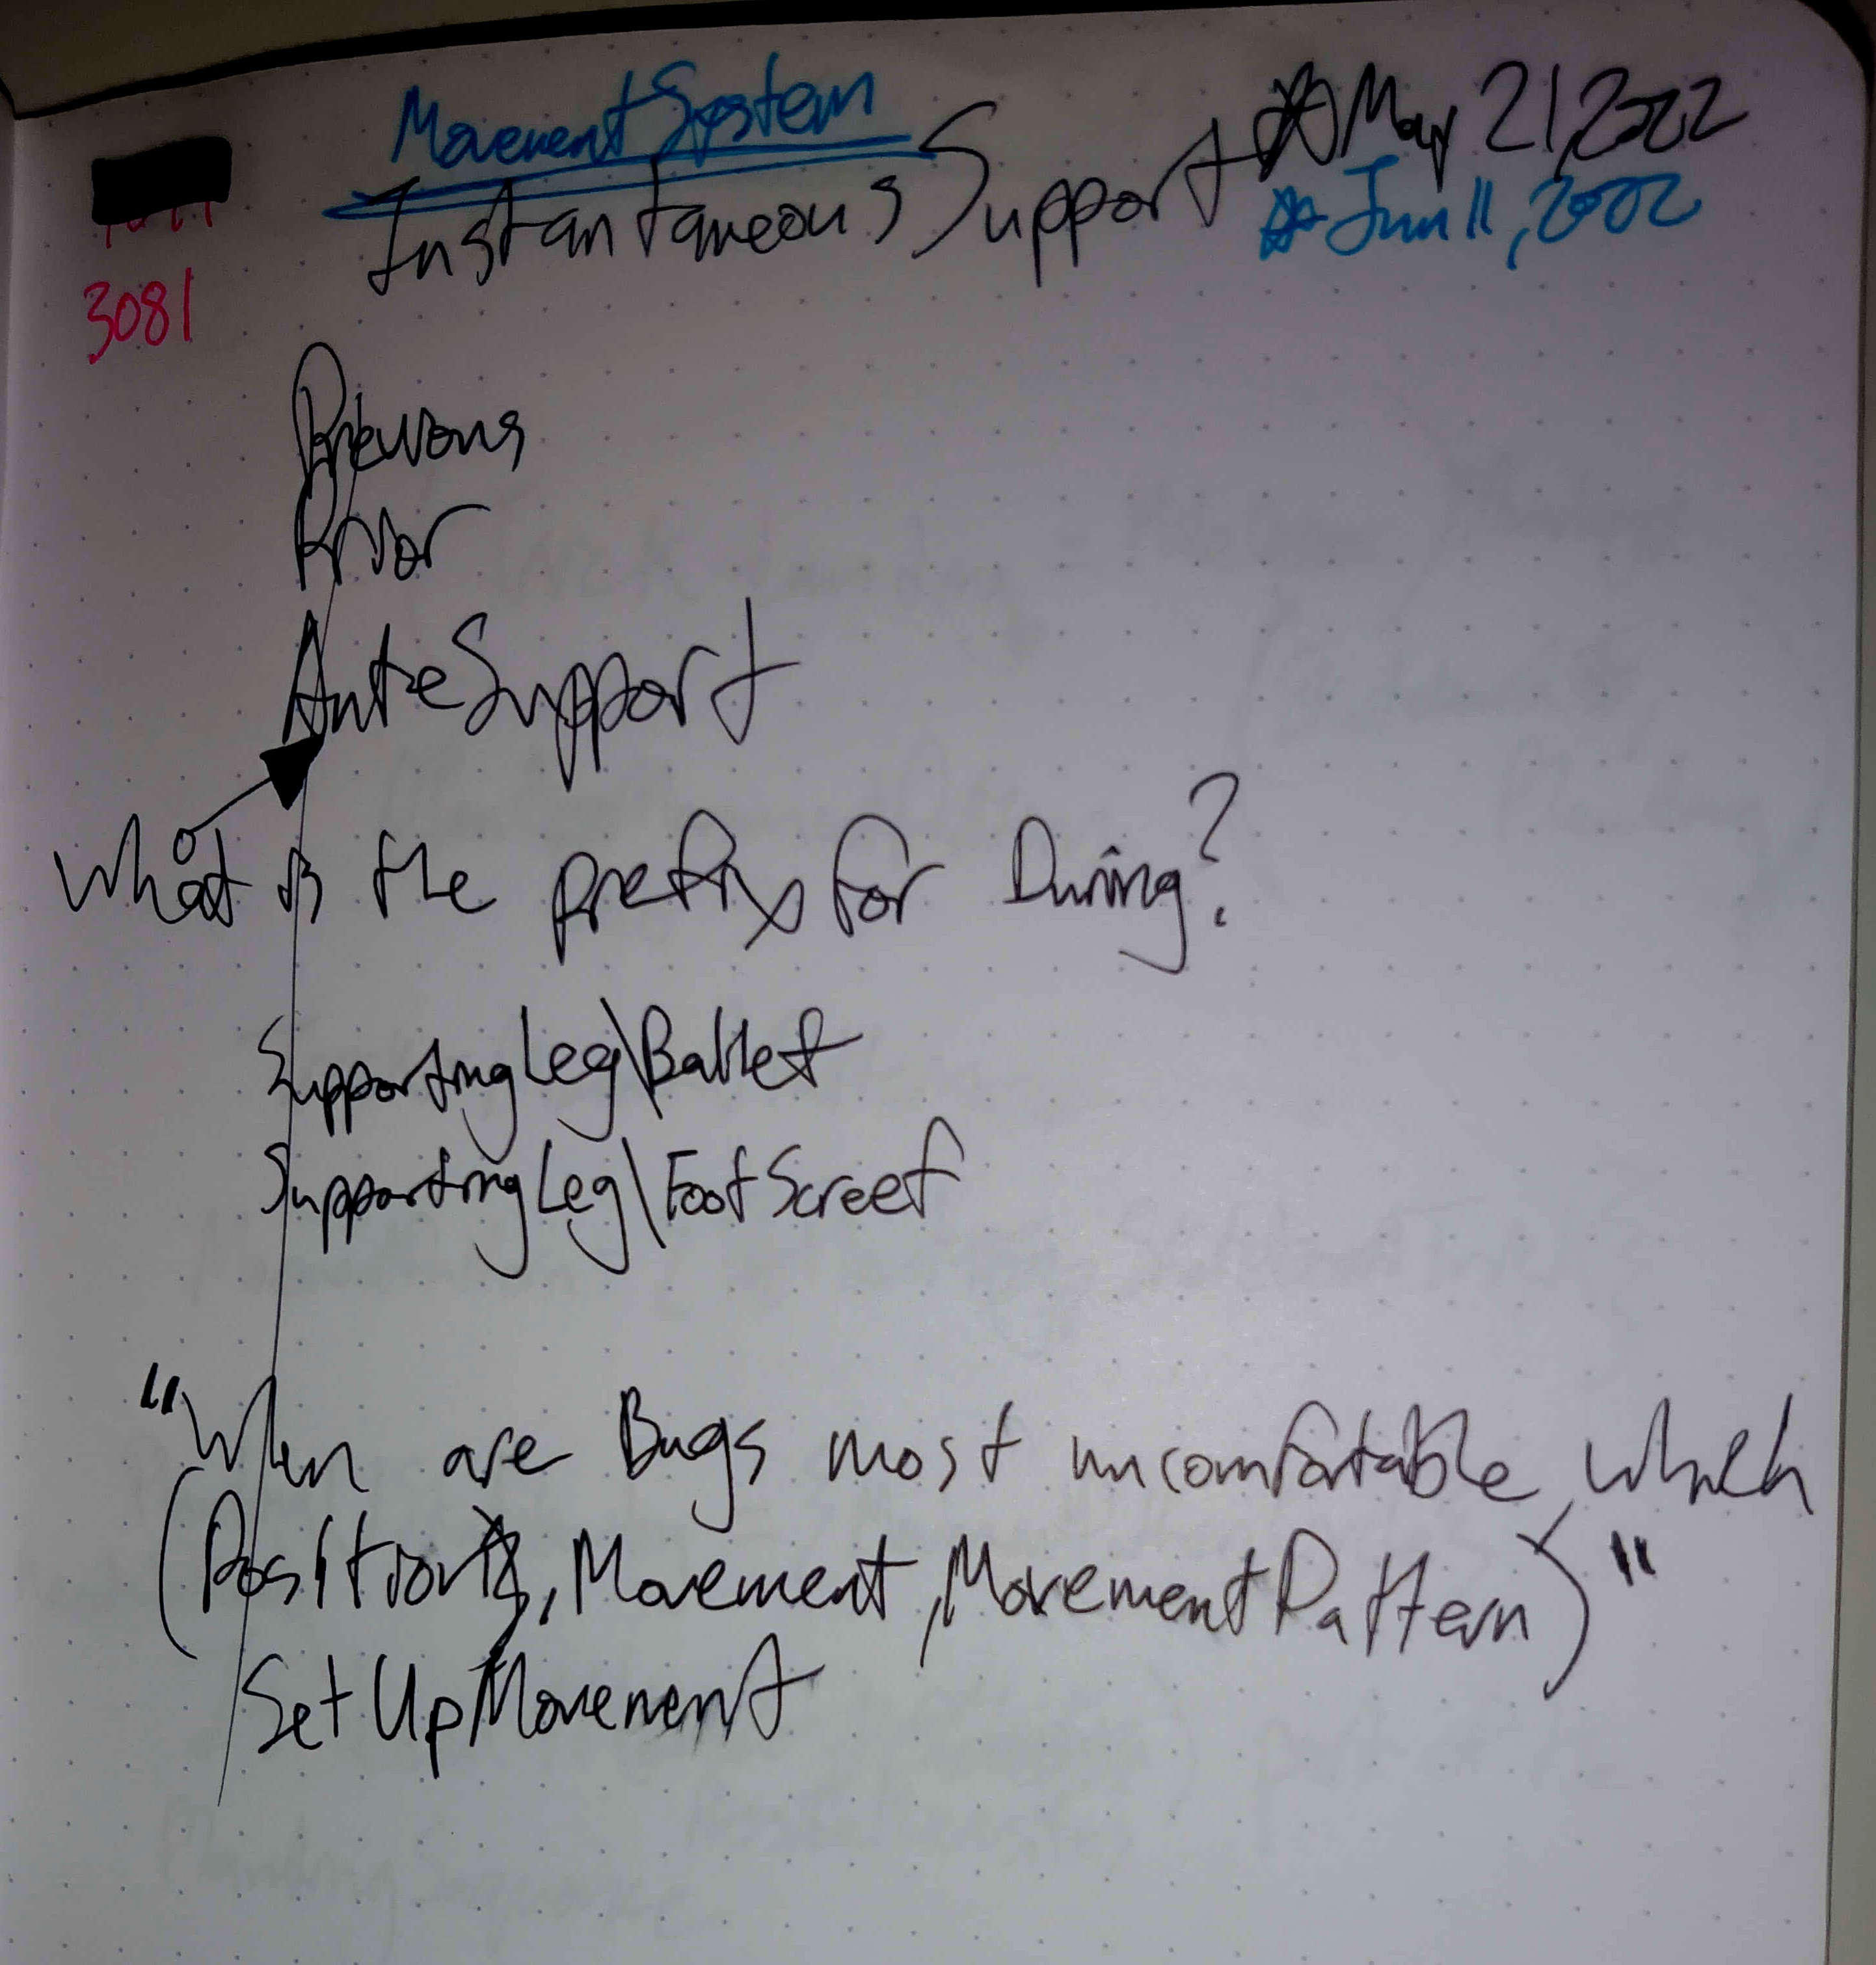 MovementSystem
InstantaneousSupport May 21, 2022
Jun 11, 2022
3081
Previous
Prior
AnteSupport
What is the prefix for During?
SupportingLeg\Ballet
SupportingLeg\FootScreef
"When are Bugs most uncomfortable, which
(Position, Movement, MovementPattern)"
SetUpMovement